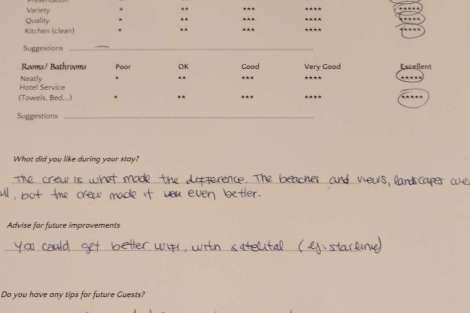 Variety * ** *** ****
Quality * ** *** **** *****
Kitchen (clean) * ** *** **** *****
Suggestions
Rooms/ Bathrooms Poor OK Good Very Good Excellent
Neatly * ** *** **** *****
Hotel Service
(Towels, Bed...) * ** *** **** *****
Suggestions
What did you like during your stay?
The crew is what made the difference. The beaches and views, landscapes
, but the crew made it even better.
Advise for future improvements
You could get better wifi, with satelital (ej. starlink)
Do you have any tips for future Guests?